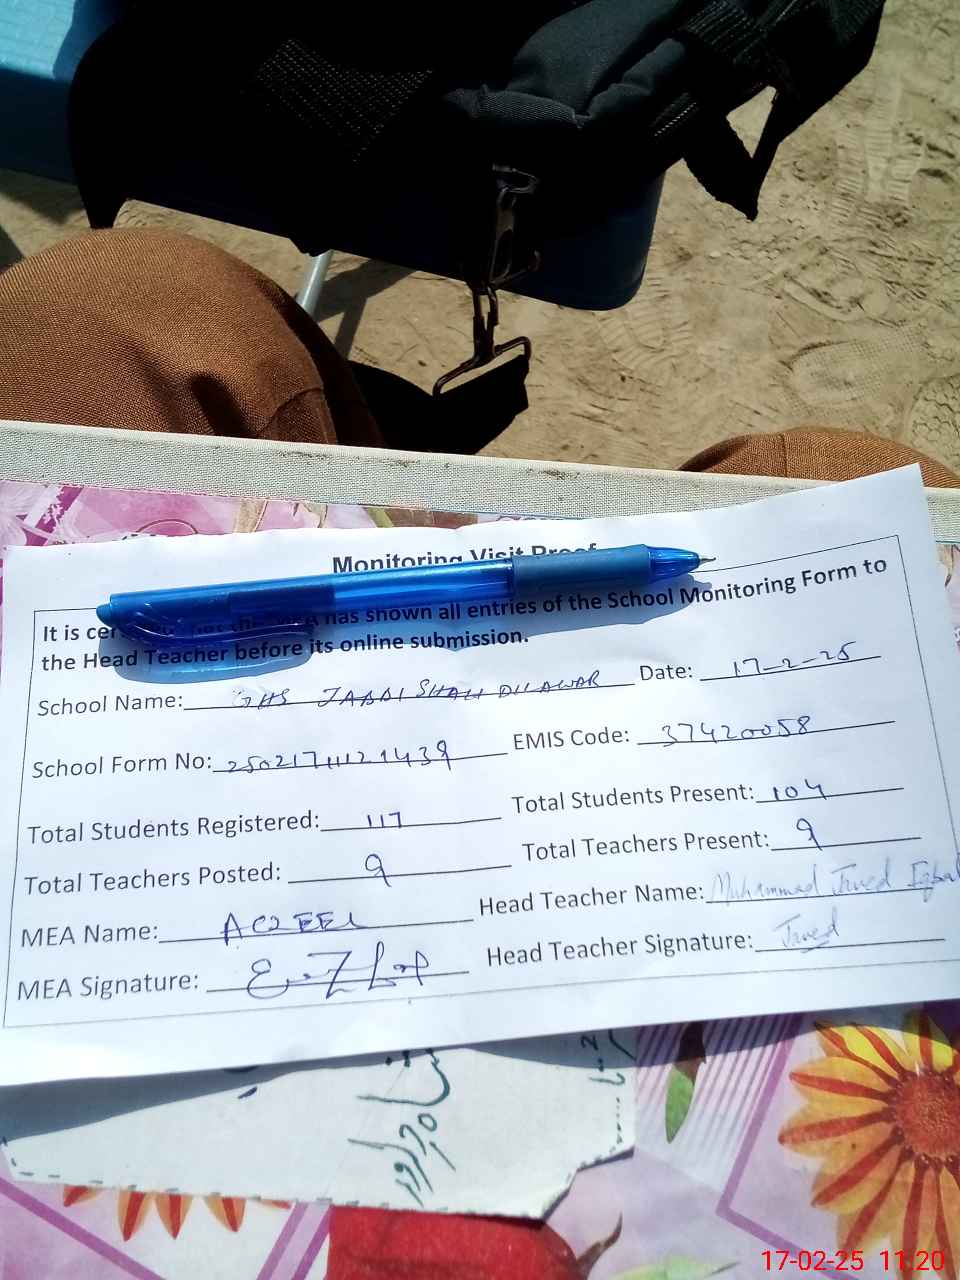 Monitoring Visit Proof
It is has shown all entries of the School Monitoring Form to
the Head Teacher before its online submission.
School Name: GHS JABBI SHAH DILAWAR Date: 17-2-25
School Form No: EMIS Code: 37420058
Total Students Registered: 117 Total Students Present: 104
Total Teachers Posted: 9 Total Teachers Present: 9
MEA Name: Head Teacher Name: Muhammad Javed Iqbal
MEA Signature: Head Teacher Signature: Javed
17-02-25 11:20